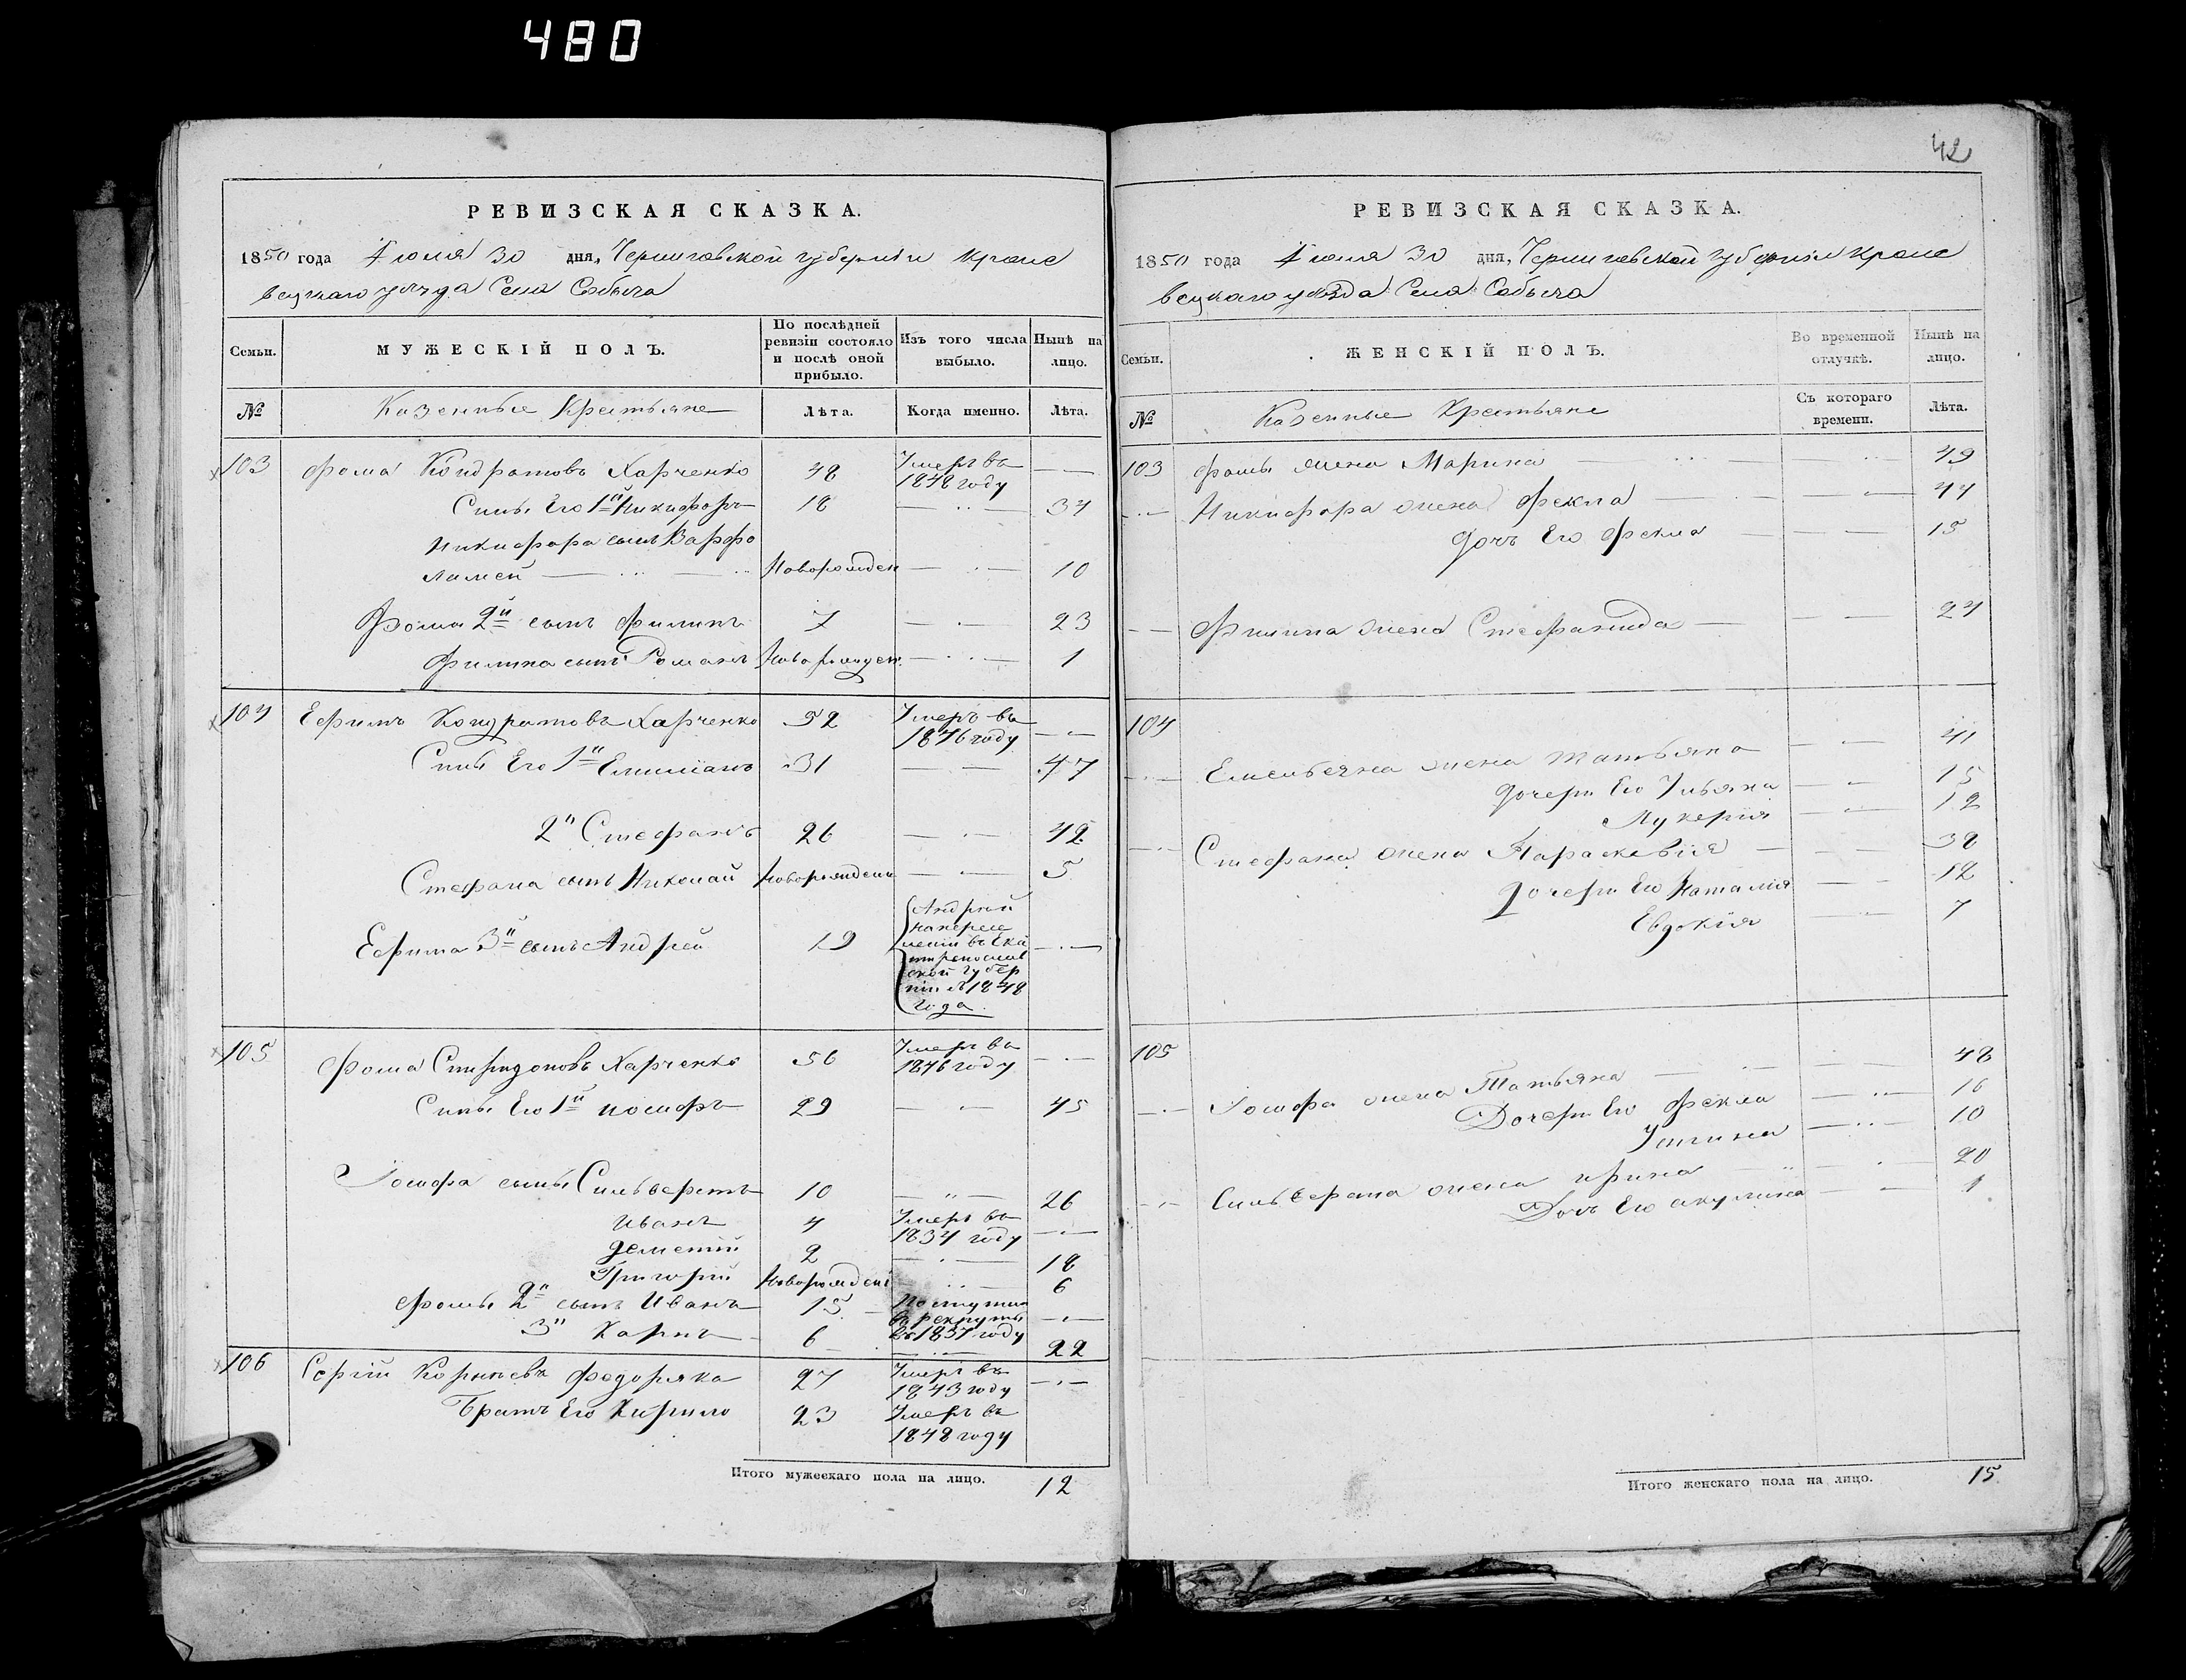 480
РЕВИЗСКАЯ СКАЗКА.
1850 года Июля 30 дня, Черниговской губерніи Кроле
вецкаго уѣзда Села Собыча
Семьи. МУЖЕСКІЙ ПОЛЪ. По послѣдней ревизіи состояло и послѣ оной прибыло. Изъ того числа выбыло. Нынѣ на лицо.
№ Казенные Крестьяне Лѣта. Когда именно. Лѣта.
103 Фома Кондратовъ Харченко 48 Умеръ въ 1848 году — —
Сыны Его 1й Никифоръ 18 — 34
Никифора сынъ Варфо
ламей — Новорожден — 10
Фомы 2й сынъ Филипъ 7 — 23
Филипа сынъ Романъ Новорожден. — 1
104 Ефимъ Кондратовъ Харченко 52 Умеръ въ 1846 году — —
Сыны Его 1й Емилианъ 31 — 47
2й Стефанъ 26 — 42
Стефана сынъ Николай Новорожденъ — 5
Ефима 3й сынъ Андрей 19 Андрей
на пересе
леніи въ Ека
теринослав
ской губер
ніи съ 1848
года. —
105 Фома Спиридоновъ Харченко 56 Умеръ въ 1846 году —
Сыны Его 1й Иосифъ 29 — 45
Іосифа сыны Сильверстъ 10 — 26
Иванъ 4 Умеръ въ 1834 году —
Дементій 2 — 18
Григорій Новорожденъ — 6
Фомы 2й сынъ Иванъ 15 Поступил
въ рекруты
въ 1837 году —
3й Карпъ 6 — 22
106 Сергій Корнѣевъ Федоряка 27 Умеръ въ 1843 году —
Братъ Его Кирило 23 Умеръ въ 1848 году
Итого мужескаго пола на лицо. 12
42
РЕВИЗСКАЯ СКАЗКА.
1850 года Июля 30 дня, Черниговской губерніи Кроле
вецкаго уѣзда Села Собыча
Семьи. ЖЕНСКІЙ ПОЛЪ. Во временной отлучкѣ. Нынѣ на лицо.
№ Казенные Крестьяне Съ котораго времени. Лѣта.
103 Фомы жена Марина — 49
Никифора жена Фекла — 44
Дочь Его Фекла — 15
Филипа жена Стефанида — 24
104
Емельяна жена Татьяна — 41
Дочери Его Ульяна — 15
Лукерія — 12
Стефана жена Параскевія — 38
Дочери Его Наталія — 12
Евдокія — 7
105
Іосифа жена Татьяна — 48
Дочери Его Фекла — 16
Устина — 10
Сильверста жена Ирина — 20
Дочь Его Акулина — 1
Итого женскаго пола на лицо. 15.